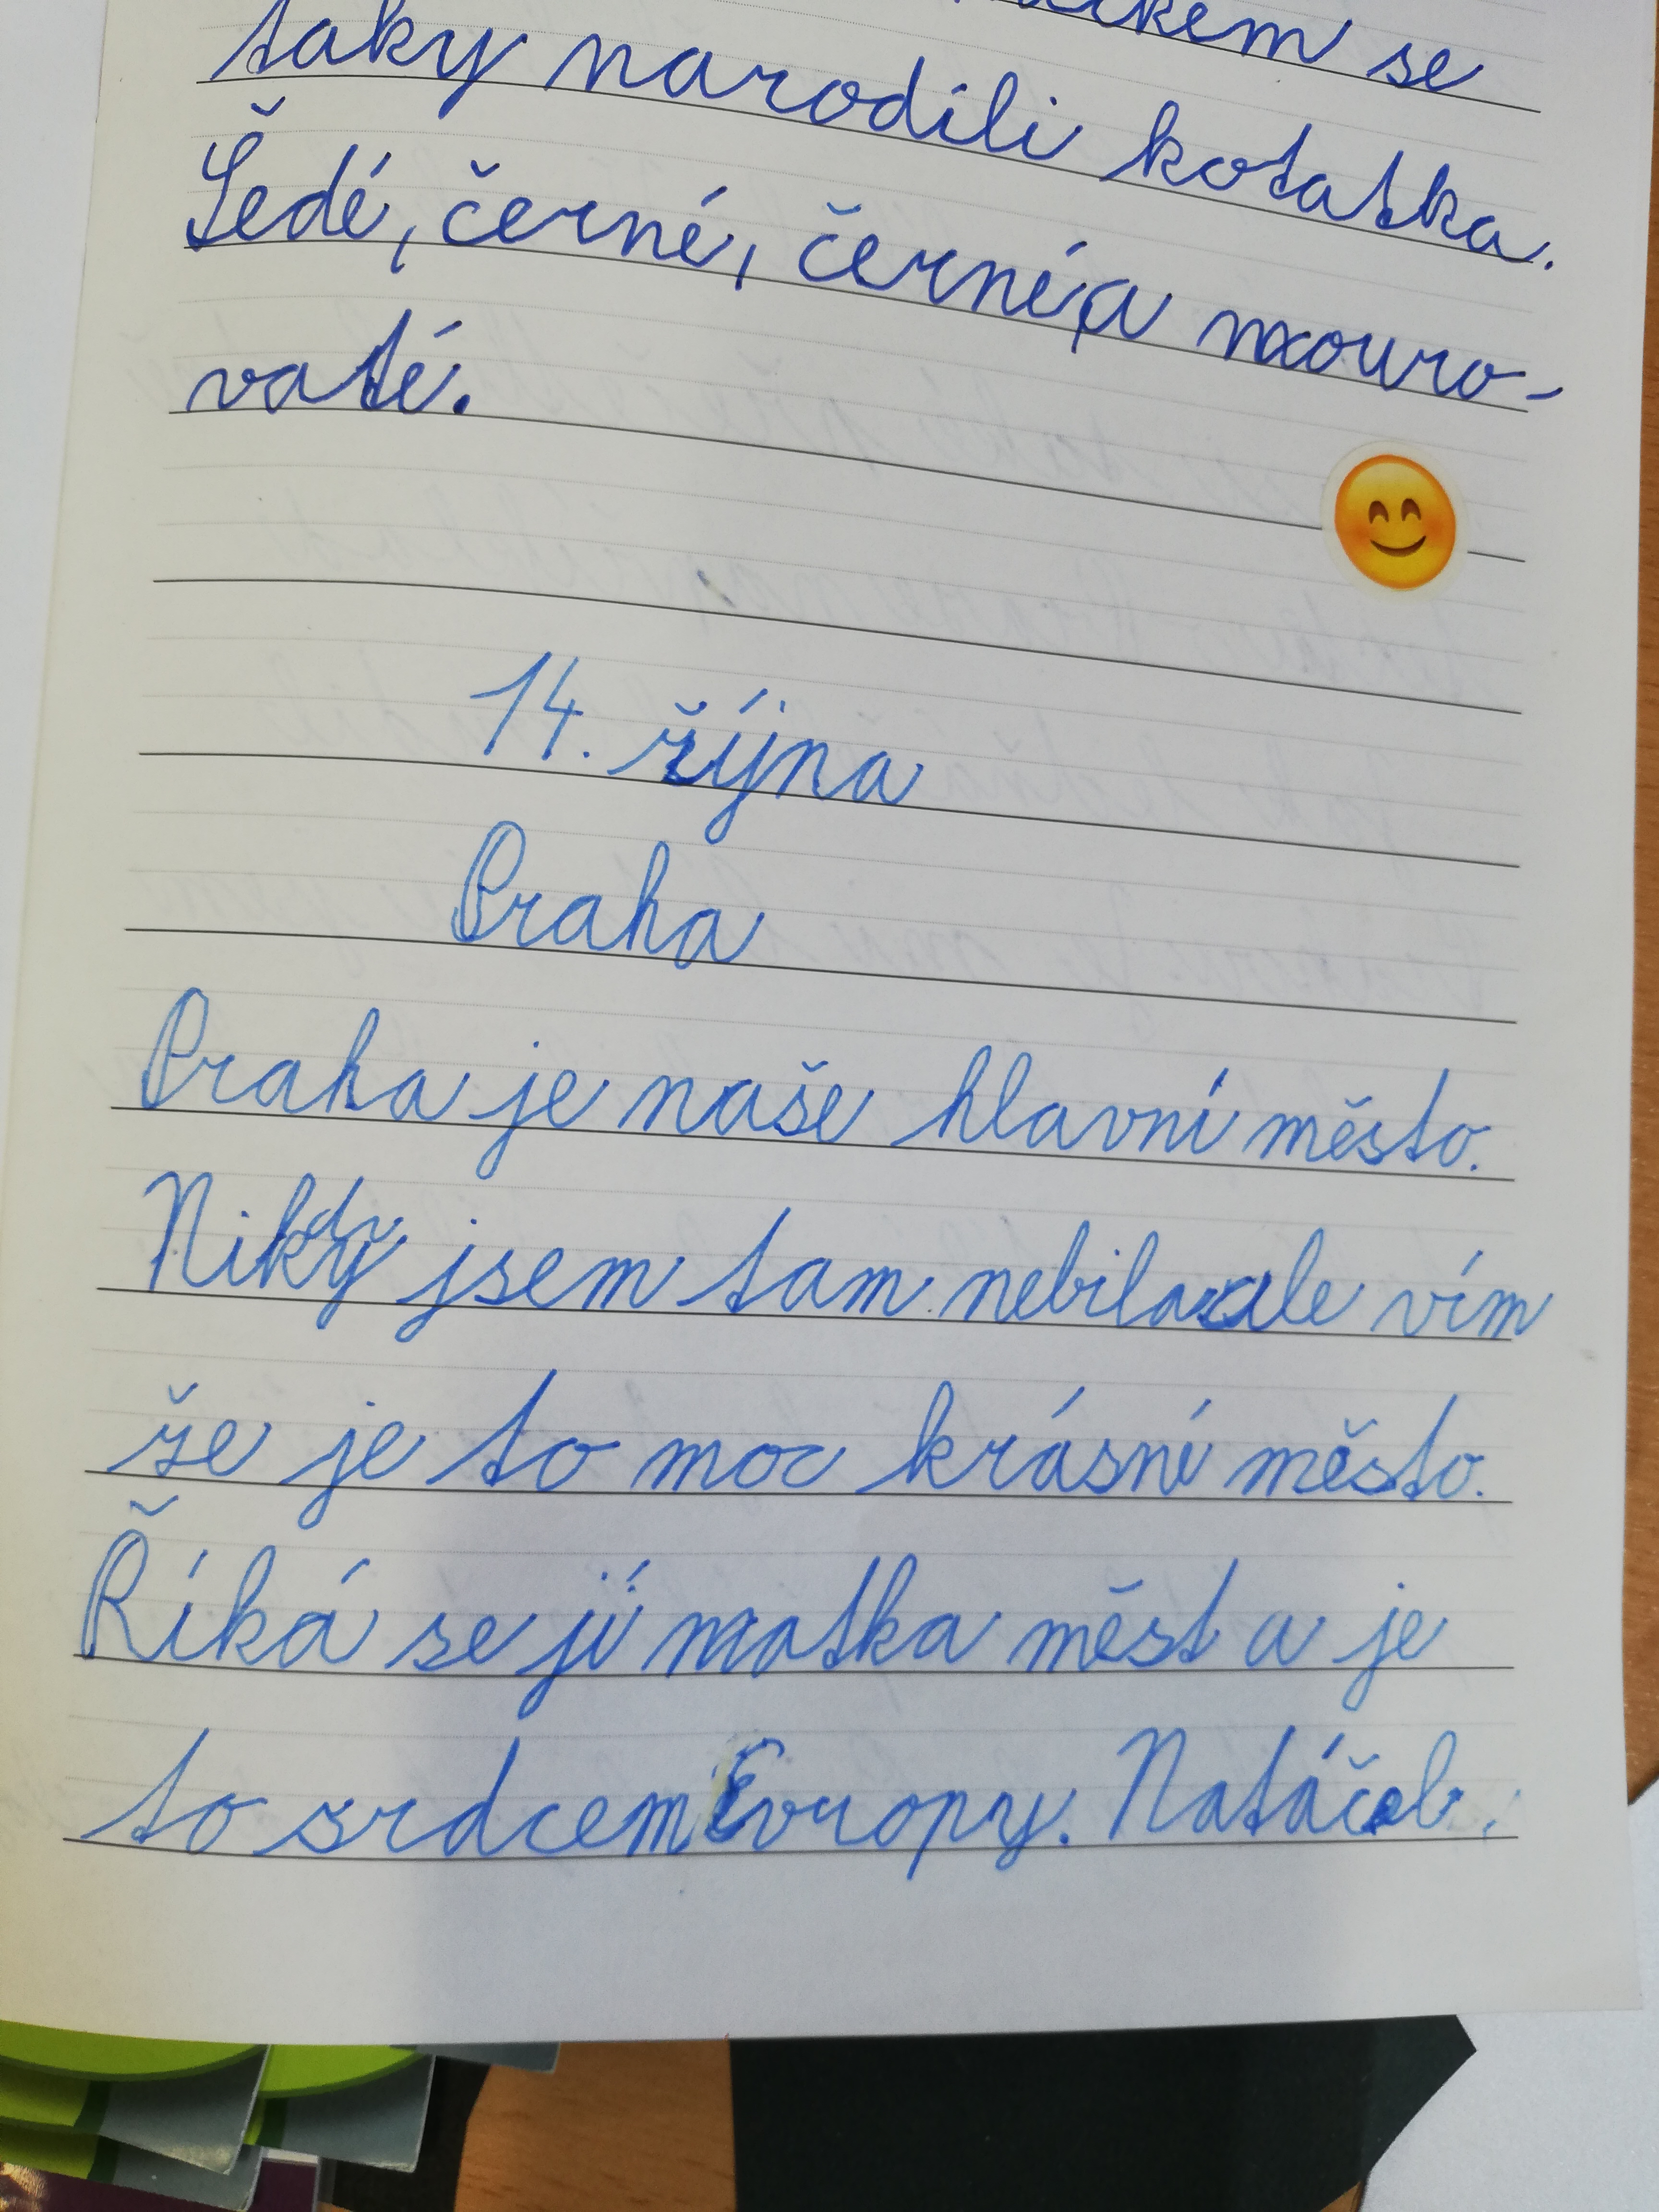 se
taky narodili kotatka.
Šedé, černé, černé, a mouro-
vaté.
14. října
Praha
Praha je naše hlavní město.
Nikdy jsem tam nebila ale vím
že je to moc krásné město.
Říká se jí matka měst a je
to srdcem Evropy. Natáčel